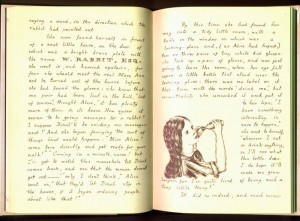 saying a word, in the direction which the
rabbit had pointed out.
She soon found herself in front
of a neat little house, on the door of
which was a bright brass plate with
the name W. RABBIT, ESQ.
she went in, and hurried upstairs, for
fear she should meet the real Mary Ann
and be turned out of the house before
she had found the gloves: she knew that
one pair had been lost in the hall, "but
of course," thought Alice, "it has plenty
more of them in its house. How queer it
seems to be going messages for a rabbit!
I suppose Dinah'll be sending me messages
next!" And she began fancying the sort of
things that would happen: "Miss Alice!
come here directly and get ready for your
walk!" "Coming in a minute, nurse! but
I've got to watch this mousehole till Dinah
comes back, and see that the mouse doesn't
get out—" "only I don't think," Alice
went on, "that they'd let Dinah stop in
the house, if it began ordering people
about like that!"
By this time she had found her
way into a tidy little room, with a
table in the window on which was a
looking-glass and, (as Alice had hoped)
two or three pairs of tiny white kid gloves:
she took up a pair of gloves, and was just
going to leave the room, when her eye fell
upon a little bottle that stood near the
looking-glass: there was no label on it
this time with the words "drink me", but
nevertheless she uncorked it and put it
to her lips: "I
know something
interesting is
sure to happen,"
she said to herself,
"whenever I eat
or drink anything,
so I'll see what
this bottle does.
I do hope it'll
make me grow
larger, for I'm quite tired of being such a
tiny little thing!"
It did so indeed, and much sooner